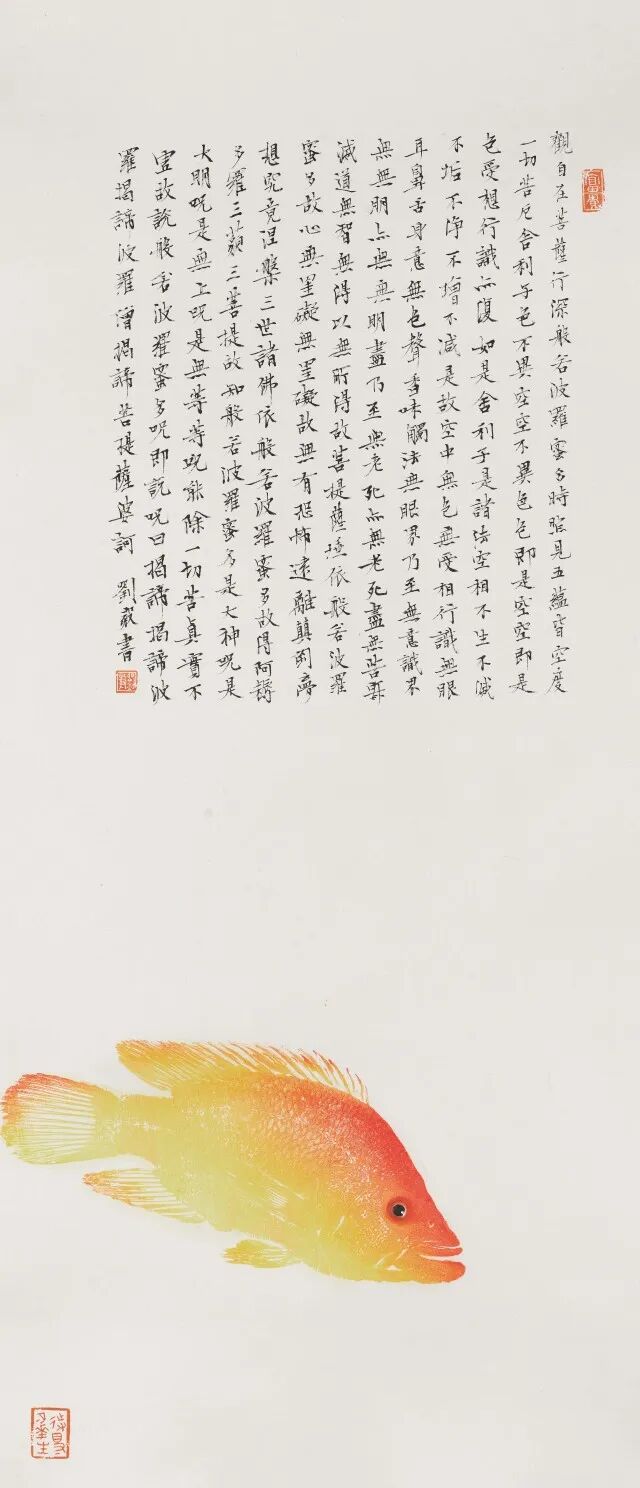 觀自在菩薩行深般若波羅蜜多時照見五蘊皆空度
一切苦厄舍利子色不異空空不異色色即是空空即是
色受想行識亦復如是舍利子是諸法空相不生不滅
不垢不淨不增不減是故空中無色無受相行識無眼
耳鼻舌身意無色聲香味觸法無眼界乃至無意識界
無無明亦無無明盡乃至無老死亦無老死盡無苦集
滅道無智無得以無所得故菩提薩埵依般若波羅
蜜多故心無罣礙無罣礙故無有恐怖遠離顛倒夢
想究竟涅槃三世諸佛依般若波羅蜜多故得阿耨
多羅三藐三菩提故知般若波羅蜜多是大神咒是
大明咒是無上咒是無等等咒能除一切苦真實不
虛故說般若波羅蜜多咒即說咒曰揭諦揭諦波
羅揭諦波羅僧揭諦菩提薩婆訶 劉書